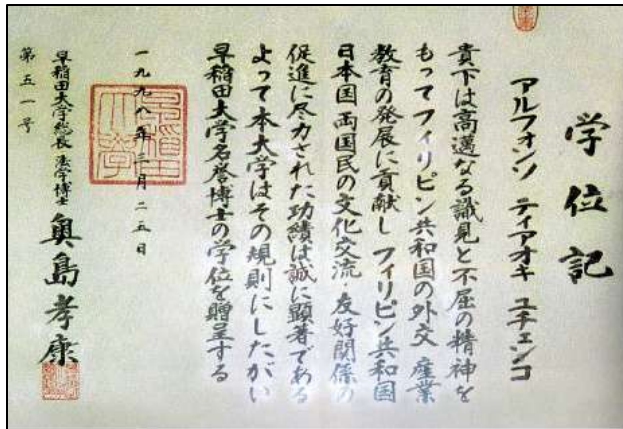 学位記
アルフォンソ ティアオキ ユチェンコ
貴下は高邁なる識見と不屈の精神を
もってフィリピン共和国の外交 産業
教育の発展に貢献し フィリピン共和国
日本国両国民の文化交流・友好関係の
促進に尽力された功績は誠に顕著である
よって本大学はその規則にしたがい
早稲田大学名誉博士の学位を贈呈する
一九九八年二月二五日
早稲田大学総長 法学博士 奥島孝康
第五一号